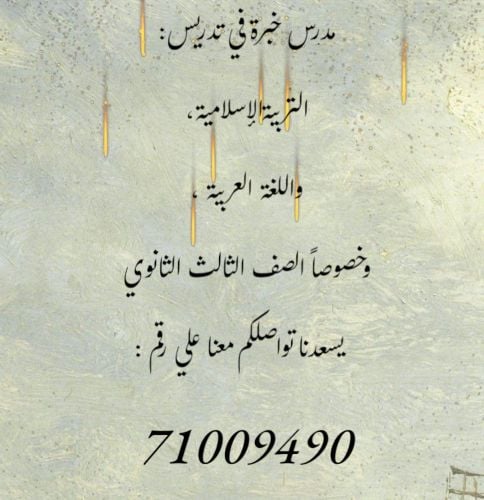 مدرس خبرة في تدريس:
التربية الإسلامية،
واللغة العربية ،
وخصوصاً الصف الثالث الثانوي
يسعدنا تواصلكم معنا علي رقم :
71009490